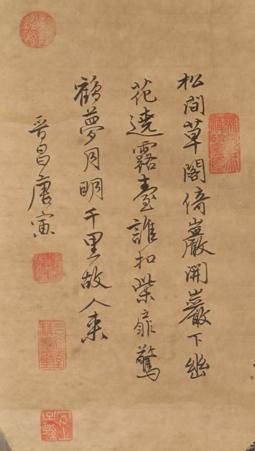 松間草閣倚巖開巖下幽
花遶露臺誰扣柴扉驚
鶴夢月明千里故人来
晉昌唐寅